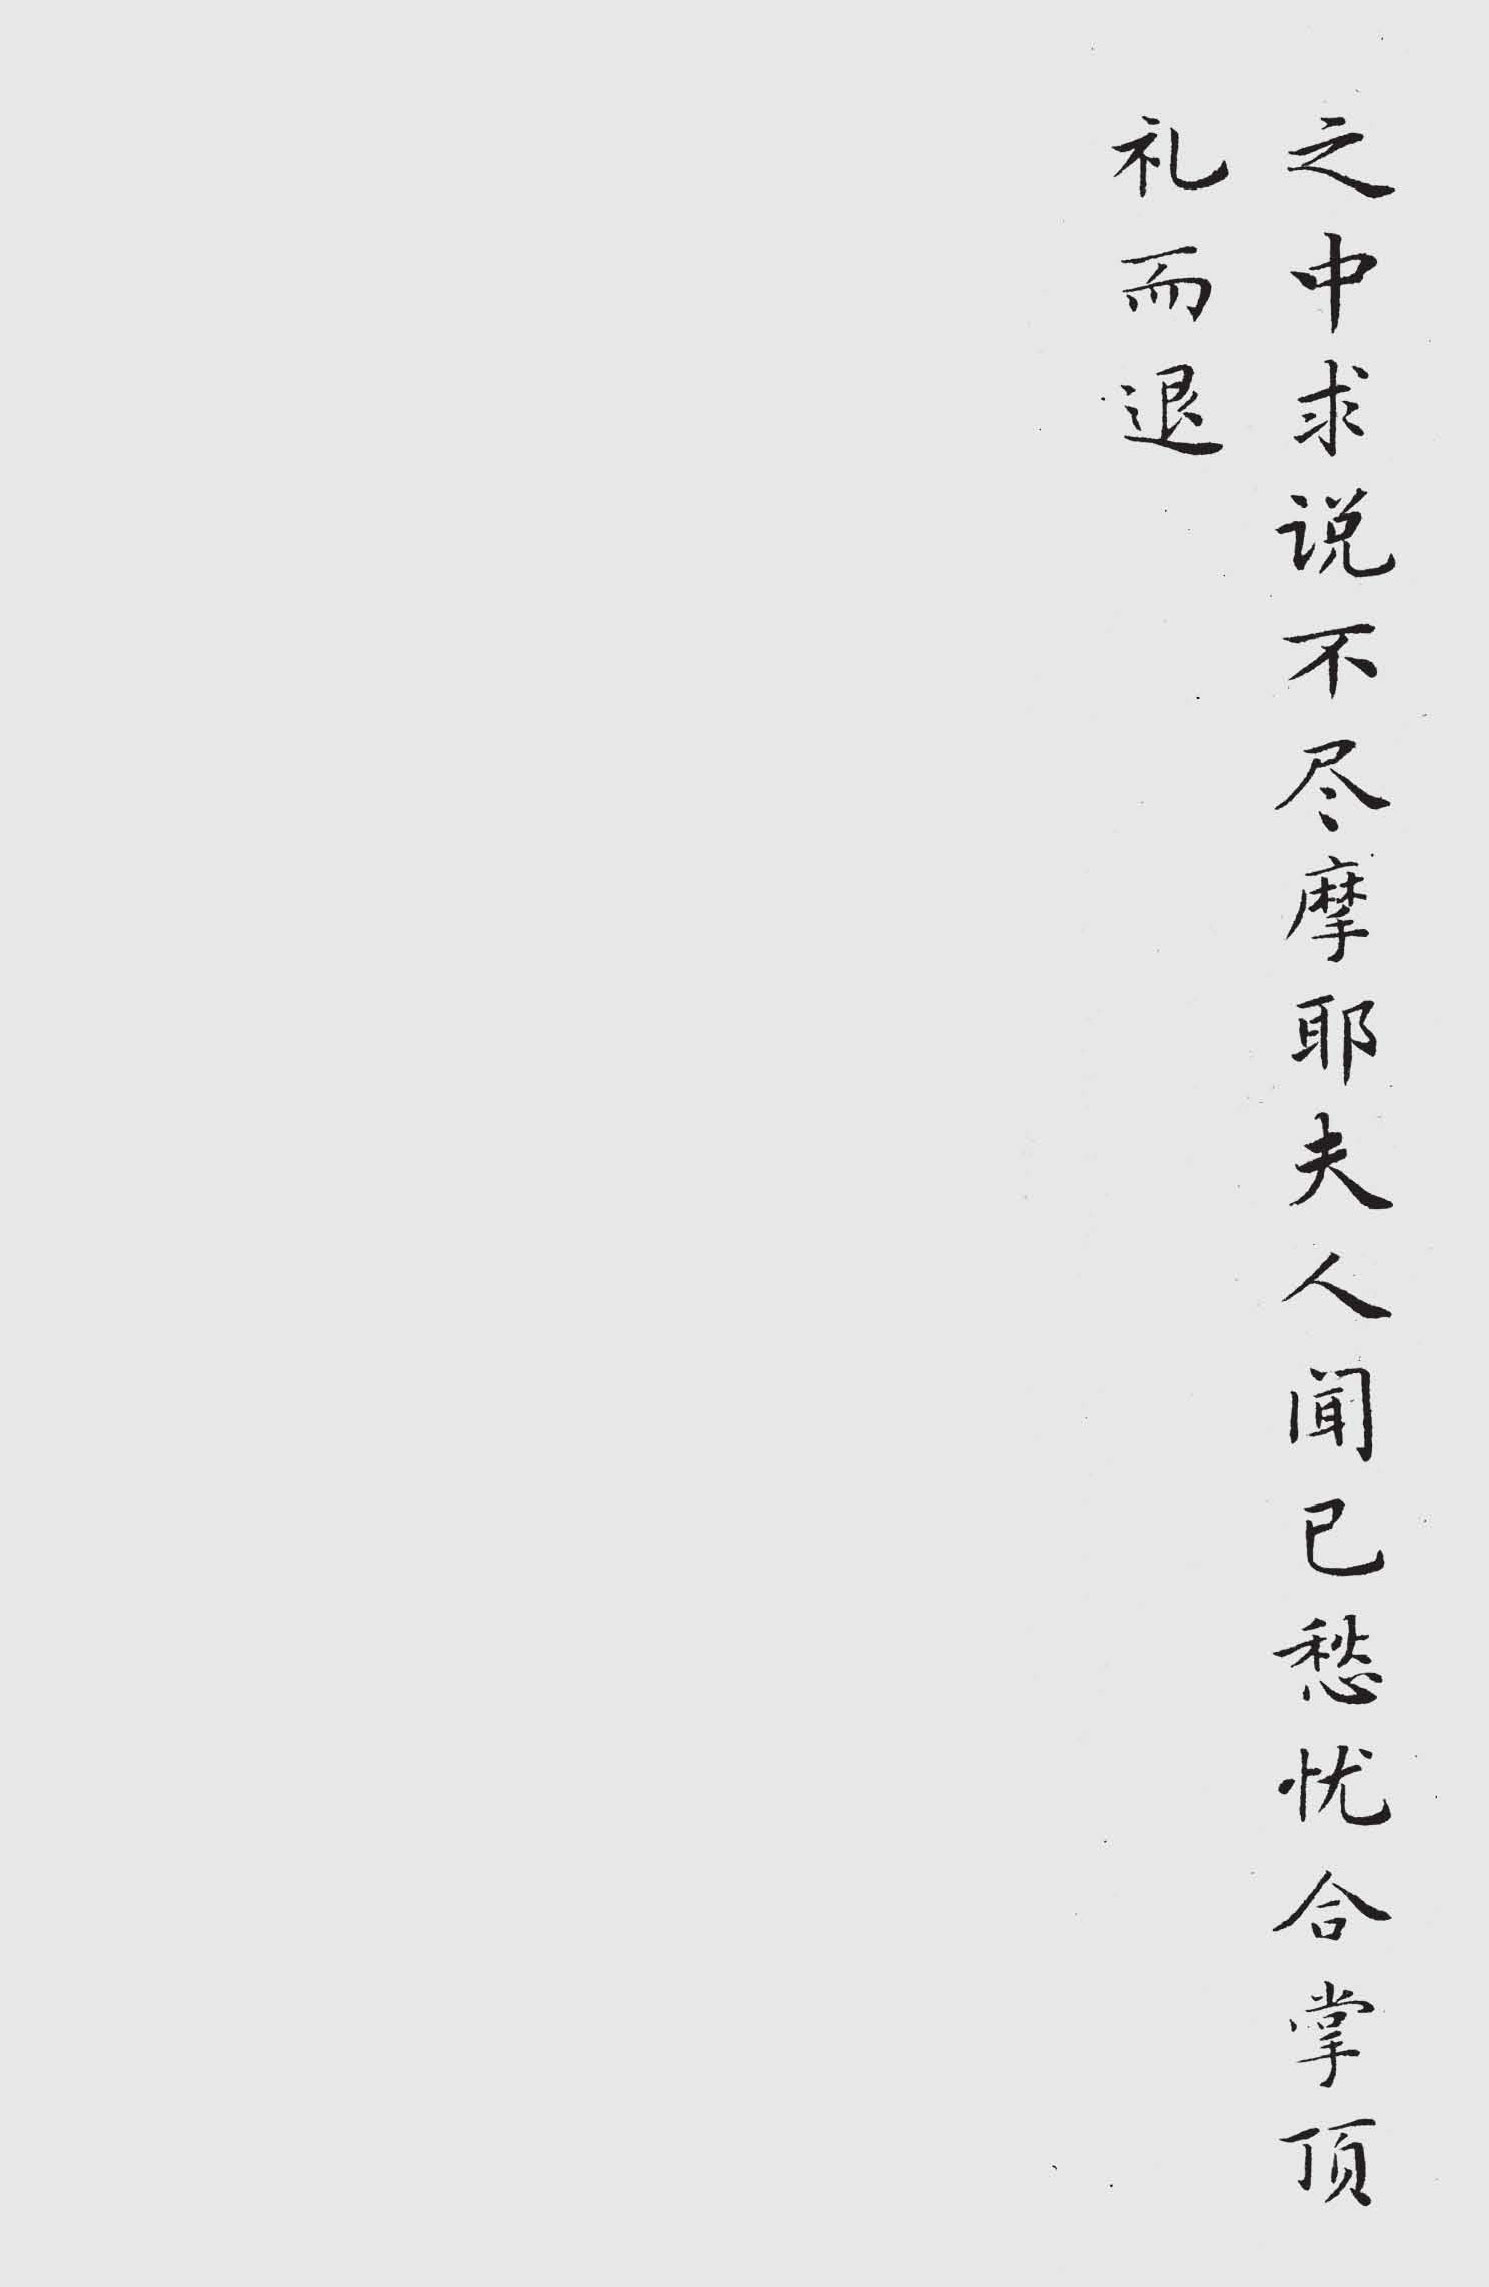 之中求说不尽摩耶夫人闻已愁忧合掌顶
礼而退